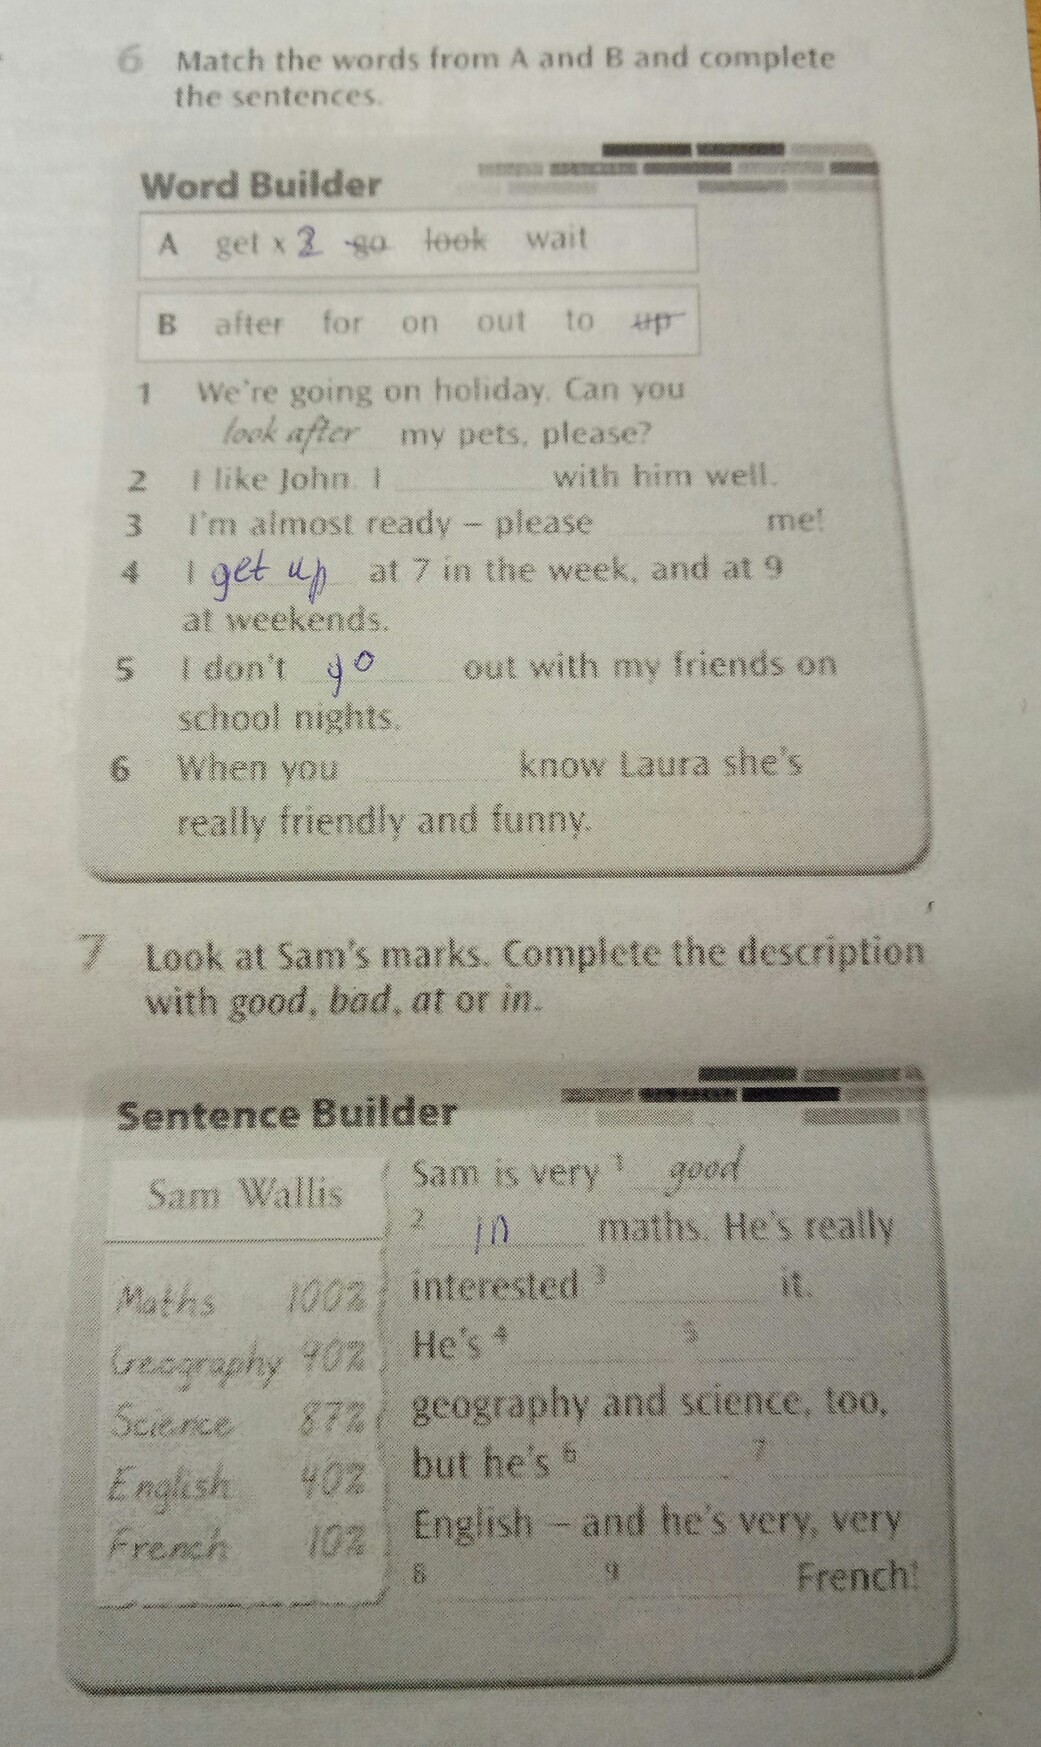 6 Match the words from A and B and complete
the sentences.
Word Builder
A get x 2 go look wait
B after for on out to up
1 We're going on holiday. Can you
look after my pets, please?
2 I like John. I ________ with him well.
3 I'm almost ready – please ________ me!
4 I get up at 7 in the week, and at 9
at weekends.
5 I don't go out with my friends on
school nights.
6 When you ________ know Laura she's
really friendly and funny.
7 Look at Sam's marks. Complete the description
with good, bad, at or in.
Sentence Builder
Sam Wallis
Maths 100%
Geography 90%
Science 87%
English 40%
French 10%
Sam is very 1 good
2 in maths. He's really
interested 3 ________ it.
He's 4 ________ 5 ________
geography and science, too,
but he's 6 ________ 7 ________
English – and he's very, very
8 ________ 9 ________ French!